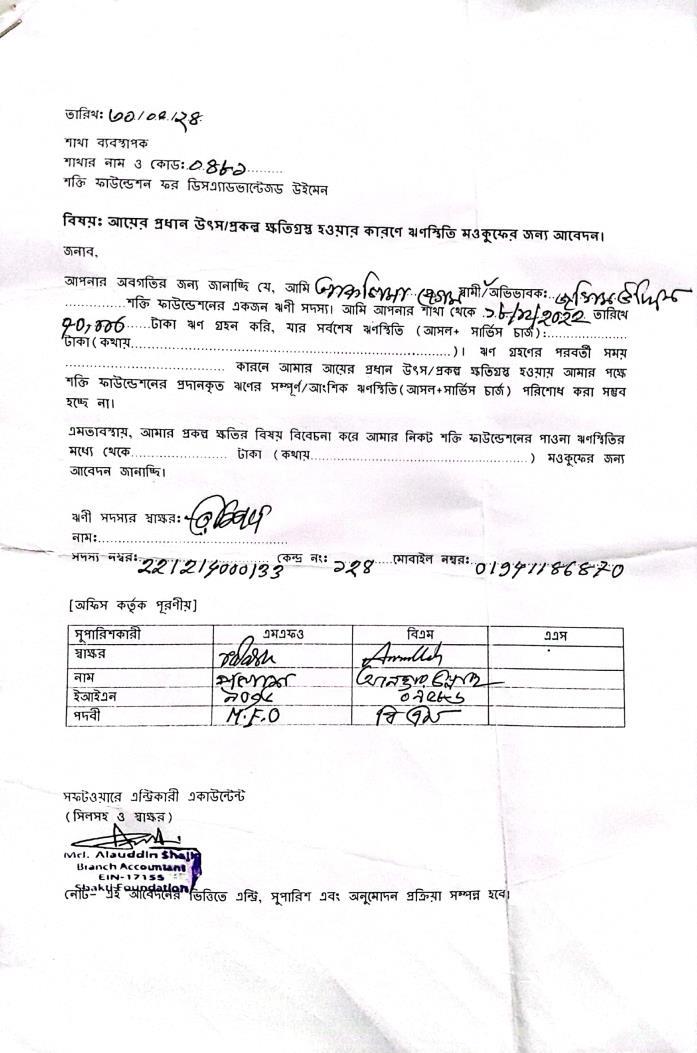 তারিখ: ৩০/০৪/২৪
শাখা ব্যবস্থাপক
শাখার নাম ও কোড: ০৪৮১.........
শক্তি ফাউন্ডেশন ফর ডিসএ্যাডভান্টেজড উইমেন
বিষয়: আয়ের প্রধান উৎস/প্রকল্প ক্ষতিগ্রস্থ হওয়ার কারণে ঋণস্থিতি মওকুফের জন্য আবেদন।
জনাব,
আপনার অবগতির জন্য জানাচ্ছি যে, আমি বেগম স্বামী/অভিভাবক:
...............শক্তি ফাউন্ডেশনের একজন ঋণী সদস্য। আমি আপনার শাখা থেকে ১৮/১২/২০২২ তারিখে
৭০,০০০......টাকা ঋণ গ্রহন করি, যার সর্বশেষ ঋণস্থিতি (আসল+ সার্ভিস চার্জ):...............
টাকা(কথায়.............................................................)। ঋণ গ্রহণের পরবর্তী সময়
.............................. কারনে আমার আয়ের প্রধান উৎস/প্রকল্প ক্ষতিগ্রস্থ হওয়ায় আমার পক্ষে
শক্তি ফাউন্ডেশনের প্রদানকৃত ঋণের সম্পূর্ণ/আংশিক ঋণস্থিতি(আসল+সার্ভিস চার্জ) পরিশোধ করা সম্ভব
হচ্ছে না।
এমতাবস্থায়, আমার প্রকল্প ক্ষতির বিষয় বিবেচনা করে আমার নিকট শক্তি ফাউন্ডেশনের পাওনা ঋণস্থিতির
মধ্যে থেকে.................. টাকা (কথায়..........................................) মওকুফের জন্য
আবেদন জানাচ্ছি।
ঋণী সদস্যর স্বাক্ষর:
নাম:...................................
সদস্য নম্বর: 221214000133 কেন্দ্র নং: ১২৪ মোবাইল নম্বর: 01941186870
[অফিস কর্তৃক পূরণীয়]
সুপারিশকারী এমএফও বিএম এএস
স্বাক্ষর
নাম পলাশ
ইআইএন
পদবী M.F.O বি এম
সফটওয়ারে এন্ট্রিকারী একাউন্টেন্ট
(সিলসহ ও স্বাক্ষর)
Md. Alauddin Shaik
Branch Accountant
EIN-17155
Shakti Foundation
নোট- এই আবেদনের ভিত্তিতে এন্ট্রি, সুপারিশ এবং অনুমোদন প্রক্রিয়া সম্পন্ন হবে।